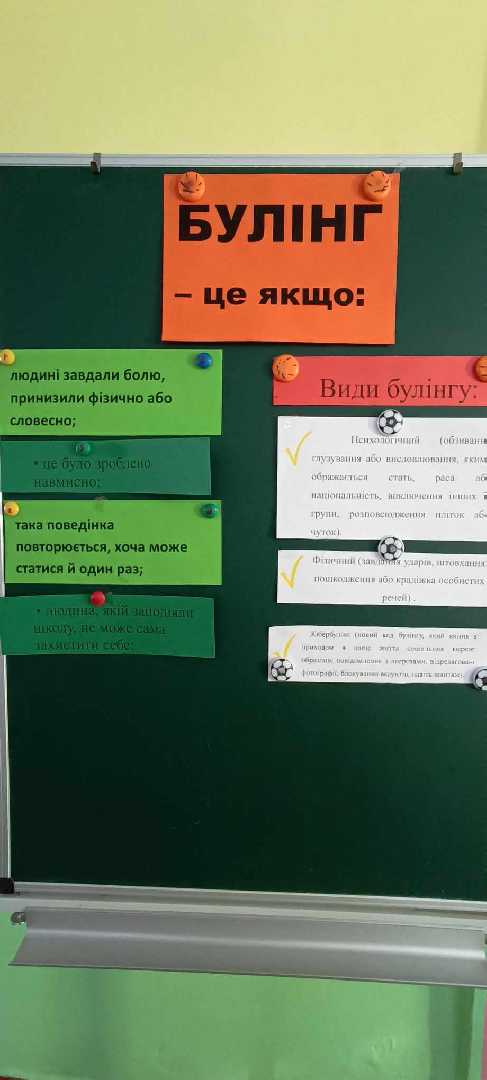 БУЛІНГ
– це якщо:
людині завдали болю,
принизили фізично або
словесно;
• це було зроблено
навмисно;
така поведінка
повторюється, хоча може
статися й один раз;
• людина, якій заподіяли
шкоду, не може сама
захистити себе;
Види булінгу:
Психологічний (обзивання
глузування або висловлювання, яким
ображається стать, раса або
національність, виключення інших з
групи, розповсюдження пліток або
чуток).
Фізичний (завдання ударів, штовхання,
пошкодження або крадіжка особистих
речей) .
Кібербулінг (новий вид булінгу, який виник з
приходом в наше життя соціальних мереж:
образливі повідомлення з погрозами, відредаговані
фотографії, блокування